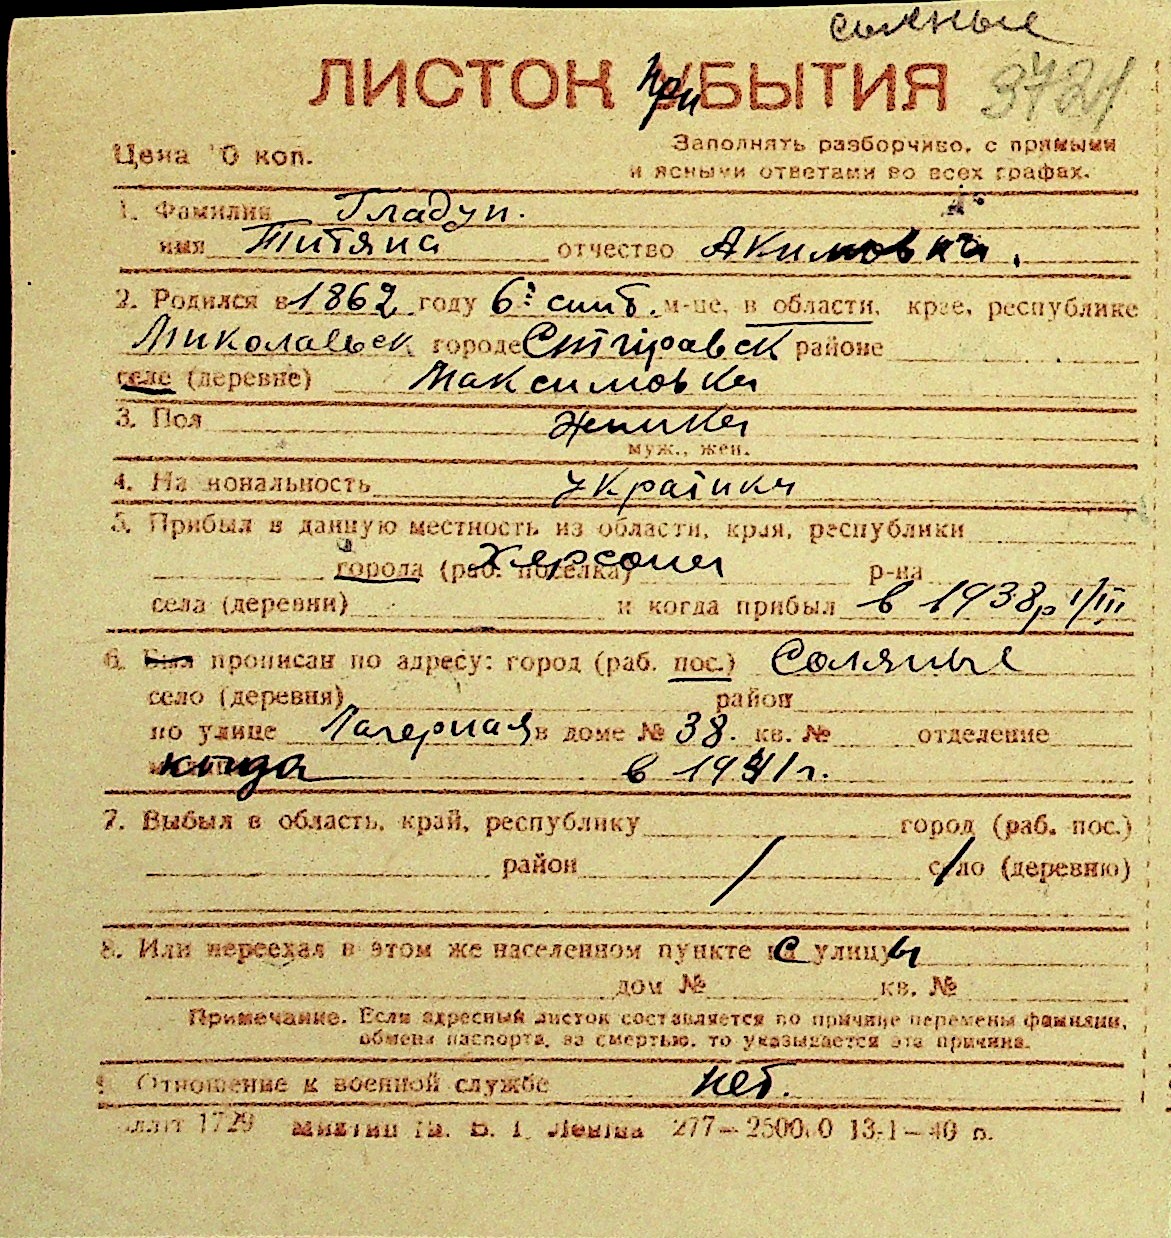 соляные
ЛИСТОК прибытия 3721
Цена 10 коп. Заполнять разборчиво, с прямыми
и ясными ответами во всех графах.
1. Фамилия Гладун.
имя Титяна отчество Акимовна.
2. Родился в 1862 году 6го сент. м-це, в области, крае, республике
Миколаевск городе районе
селе (деревне) Максимовка
3. Пол женка
муж., жен.
4. Национальность украинка
5. Прибыл в данную местность из области, края, республики
города (раб. поселка) Херсона р-на
села (деревни) и когда прибыл в 1938р 1/III
6. Был прописан по адресу: город (раб. пос.) Соляные
село (деревня) район
по улице Лагерная в доме № 38. кв. № отделение
когда в 1941 г.
7. Выбыл в область, край, республику город (раб. пос.)
район село (деревню)
8. Или переехал в этом же населенном пункте с улицы
дом № кв. №
Примечание. Если адресный листок составляется по причине перемены фамилии,
обмена паспорта, за смертью, то указывается эта причина.
9. Отношение к военной службе нет.
1729 277—2500.0 13-1—40 р.